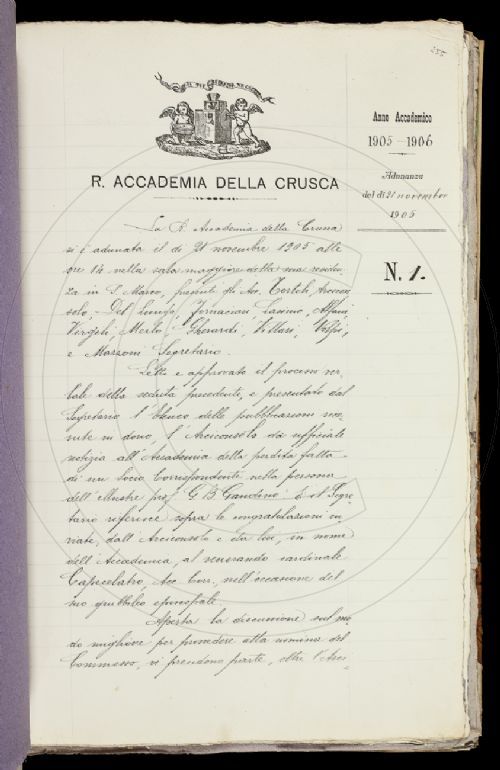 255
R. ACCADEMIA DELLA CRUSCA
Anno Accademico
1905-1906
Adunanza
del dì 21 novembre
1905
N. 1.
La R. Accademia della Crusca
si è adunata il dì 21 novembre 1905 alle
ore 14 nella sala maggiore della sua residen-
za in S. Marco, presenti gli Acc. Tortoli, Arcicon-
solo, Del Lungo, Fornaciari, Lasinio, Alfani,
Virgili, Merlo, Gherardi, Villari, Volpi,
e Mazzoni Segretario.
Letto e approvato il processo ver-
bale della seduta precedente, e presentato dal
Segretario l'Elenco delle pubblicazioni ve-
nute in dono, l'Arciconsolo dà ufficiale
notizia all'Accademia della perdita fatta
di un Socio Corrispondente nella persona
dell'Illustre prof. G. B. Gandino; e il Segre-
tario riferisce sopra le congratulazioni in-
viate, dall'Arciconsolo e da lui, in nome
dell'Accademia, al venerando cardinale
Capecelatro, Acc. Corr., nell'occasione del
suo giubbileo episcopale.
Aperta la discussione sul mo-
do migliore per provvedere alla nomina del
Commesso, vi prendono parte, oltre l'Arci-